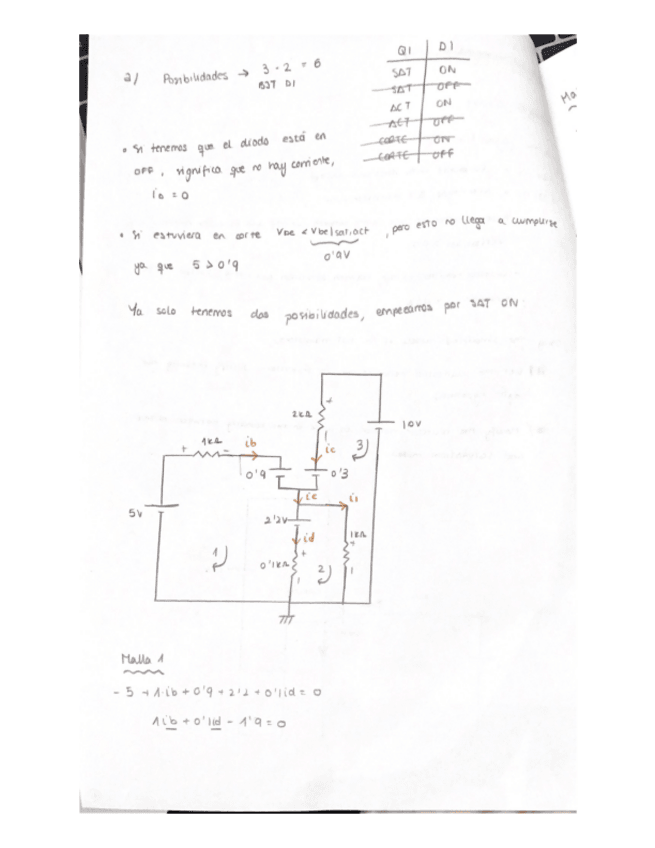 a) Posibilidades → 3 · 2 = 6
BJT D1
Q1 D1
SAT ON
SAT OFF
ACT ON
ACT OFF
CORTE ON
CORTE OFF
Ma
• Si tenemos que el diodo está en
OFF, significa que no hay corriente,
= 0
• Si estuviera en corte Vbe < Vbe|sat,act, pero esto no llega a cumplirse
0'9V
ya que 5 > 0'9
Ya solo tenemos dos posibilidades, empecemos por SAT ON
2kΩ
+
10V
ic
3)
1kΩ
+ -
ib
0'9
0'3
ie
i1
5V
2'2V
id
1kΩ
+
1)
0'1kΩ
+
2)
Malla 1
- 5 + 1·ib + 0'9 + 2'2 + 0'1id = 0
1ib + 0'1id - 1'9 = 0